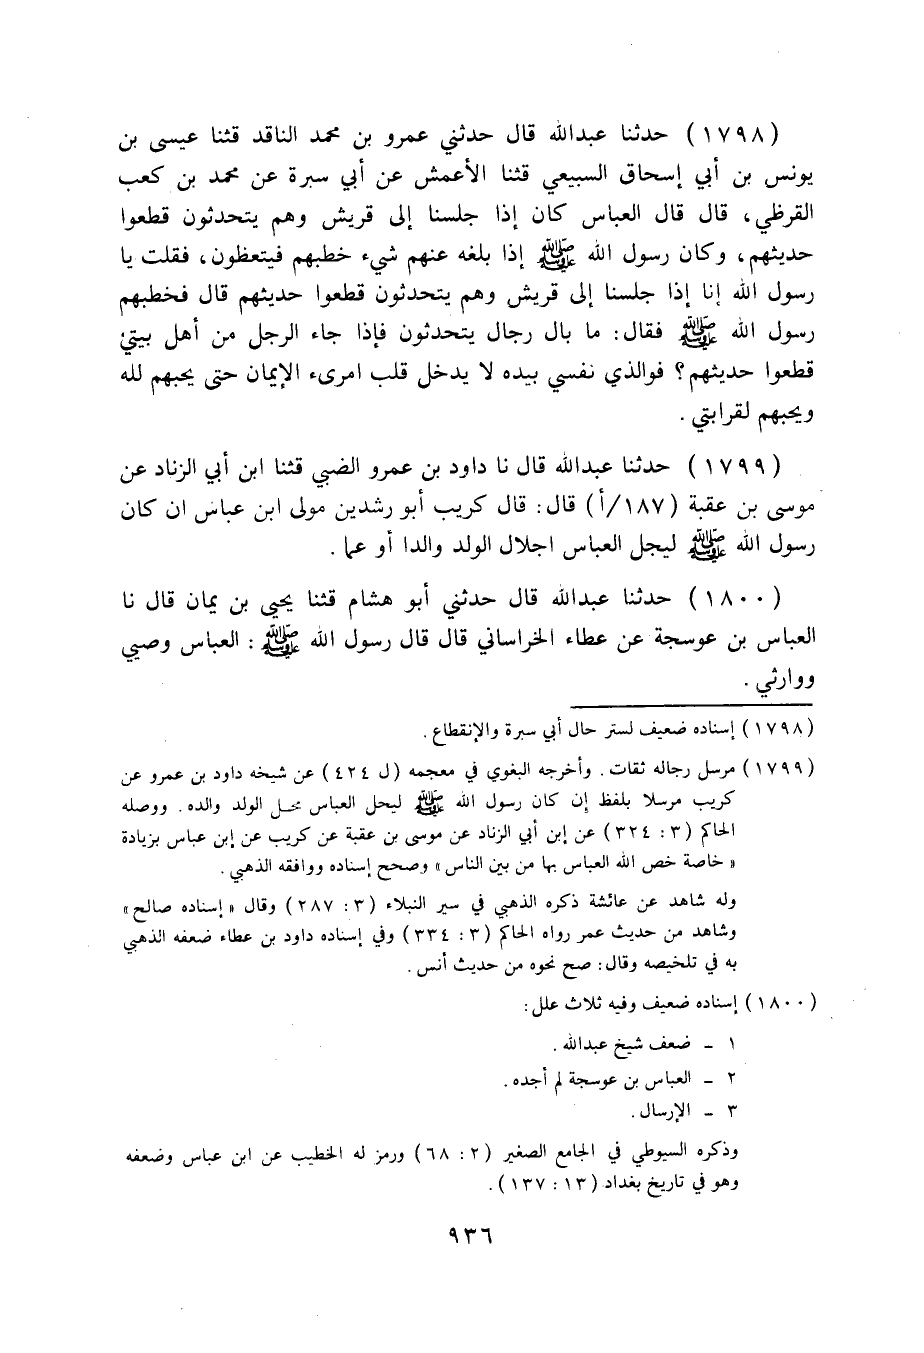 (١٧٩٨) حدثنا عبدالله قال حدثني عمرو بن محمد الناقد قثنا عيسى بن
يونس بن أبي إسحاق السبيعي قثنا الأعمش عن أبي سبرة عن محمد بن كعب
القرظي، قال قال العباس كان إذا جلسنا إلى قريش وهم يتحدثون قطعوا
حديثهم، وكان رسول الله ﷺ إذا بلغه عنهم شيء خطبهم فيتعظون، فقلت يا
رسول الله إنا إذا جلسنا إلى قريش وهم يتحدثون قطعوا حديثهم قال فخطبهم
رسول الله ﷺ فقال: ما بال رجال يتحدثون فإذا جاء الرجل من أهل بيتي
قطعوا حديثهم؟ فوالذي نفسي بيده لا يدخل قلب امرىء الإيمان حتى يحبهم لله
ويحبهم لقرابتي.
(١٧٩٩) حدثنا عبدالله قال نا داود بن عمرو الضبي قثنا ابن أبي الزناد عن
موسى بن عقبة (١٨٧/أ) قال: قال كريب أبو رشدين مولى ابن عباس ان كان
رسول الله ﷺ ليجل العباس اجلال الولد والدا أو عما.
(١٨٠٠) حدثنا عبدالله قال حدثني أبو هشام قثنا يحيى بن يمان قال نا
العباس بن عوسجة عن عطاء الخراساني قال قال رسول الله ﷺ: العباس وصيي
ووارثي.
(١٧٩٨) إسناده ضعيف لستر حال أبي سبرة والإنقطاع.
(١٧٩٩) مرسل رجاله ثقات. وأخرجه البغوي في معجمه (ل ٤٢٤) عن شيخه داود بن عمرو عن
كريب مرسلا بلفظ إن كان رسول الله ﷺ ليحل العباس محل الولد والده. ووصله
الحاكم (٣: ٣٢٤) عن إبن أبي الزناد عن موسى بن عقبة عن كريب عن إبن عباس بزيادة
«خاصة خص الله العباس بها من بين الناس» وصحح إسناده ووافقه الذهبي.
وله شاهد عن عائشة ذكره الذهبي في سير النبلاء (٣: ٢٨٧) وقال «إسناده صالح»
وشاهد من حديث عمر رواه الحاكم (٣: ٣٣٤) وفي إسناده داود بن عطاء ضعفه الذهبي
به في تلخيصه وقال: صح نحوه من حديث أنس.
(١٨٠٠) إسناده ضعيف وفيه ثلاث علل:
١ ـ ضعف شيخ عبدالله.
٢ ـ العباس بن عوسجة لم أجده.
٣ ـ الإرسال.
وذكره السيوطي في الجامع الصغير (٢: ٦٨) ورمز له الخطيب عن ابن عباس وضعفه
وهو في تاريخ بغداد (١٣: ١٣٧).
٩٣٦